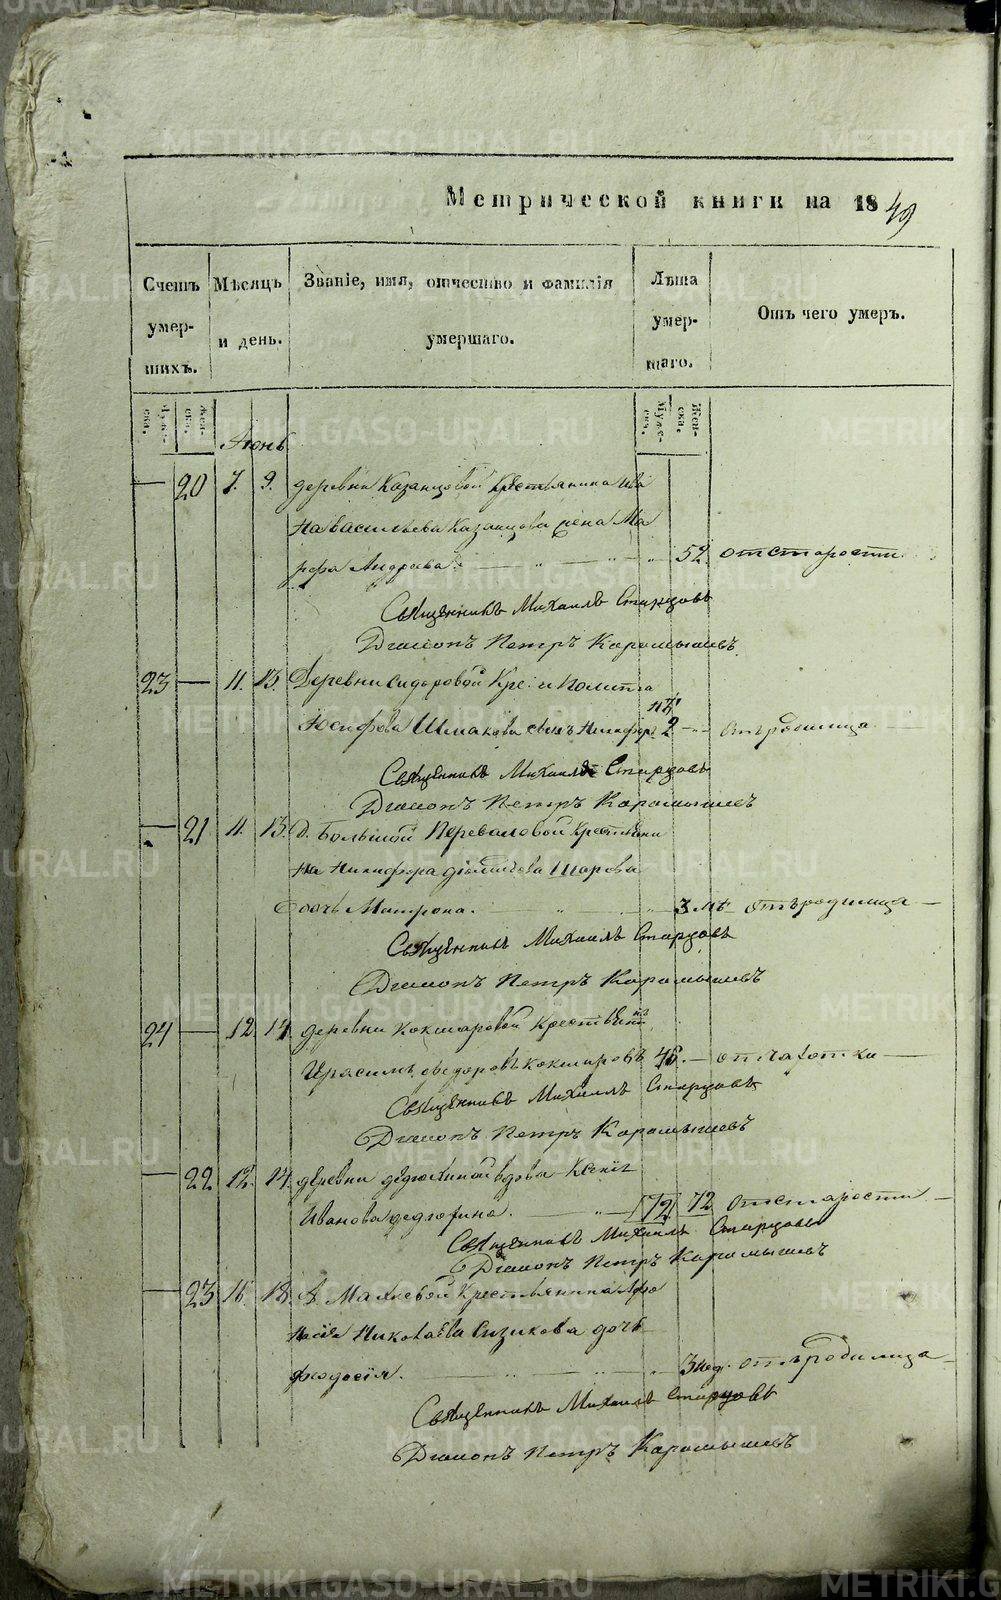 Метрической книги на 1849
Счетъ умер- шихъ.
Мѣсяцъ и день.
Званіе, имя, отчество и фамилія умершаго.
Лѣта умер- шаго.
Отъ чего умеръ.
Муже- ска.
Жен- ска.
Муже- ска.
Жен- ска.
Июнь
— 20 7. 9. деревни Казанцовой Крестьянина Ива
на Васильева Казанцова жена Ма
рфа Андреева. 52. отстарости
Священникъ Михаилъ Старцовъ
Диаконъ Петръ Карамышевъ.
23 — 11. 13. Деревни Сидоровой Кре: Иполита
Иосифова Шмакова сынъ Никифоръ. 2 — отъродимца
Священникъ Михаилъ Старцовъ
Диаконъ Петръ Карамышевъ
— 21 11. 13. Д. Большой Переваловой Крестьяни
на Никифора Шарова
дочь Матрона. 3 мѣ отъродимца —
Священникъ Михаилъ Старцовъ
Диаконъ Петръ Карамышевъ
24 — 12 14. деревни Кокшаровой Крестьянинъ
Ирасимъ Федоровъ Кокшаровъ 45. — отчахотки —
Священникъ Михаилъ Старцовъ
Диаконъ Петръ Карамышевъ
— 22 12. 14. деревни Дедюхиной вдова Ксения
Иванова Дедюхина. [72] 72 отстарости —
Священникъ Михаилъ Старцовъ
Диаконъ Петръ Карамышевъ
— 23 16. 18. д. Малаевой Крестьянина Афо
насия Николаева Сизикова дочь
Феодосія. 3 нед. отъродимца —
Священникъ Михаилъ Старцовъ
Диаконъ Петръ Карамышевъ
METRIKI.GASO-URAL.RU